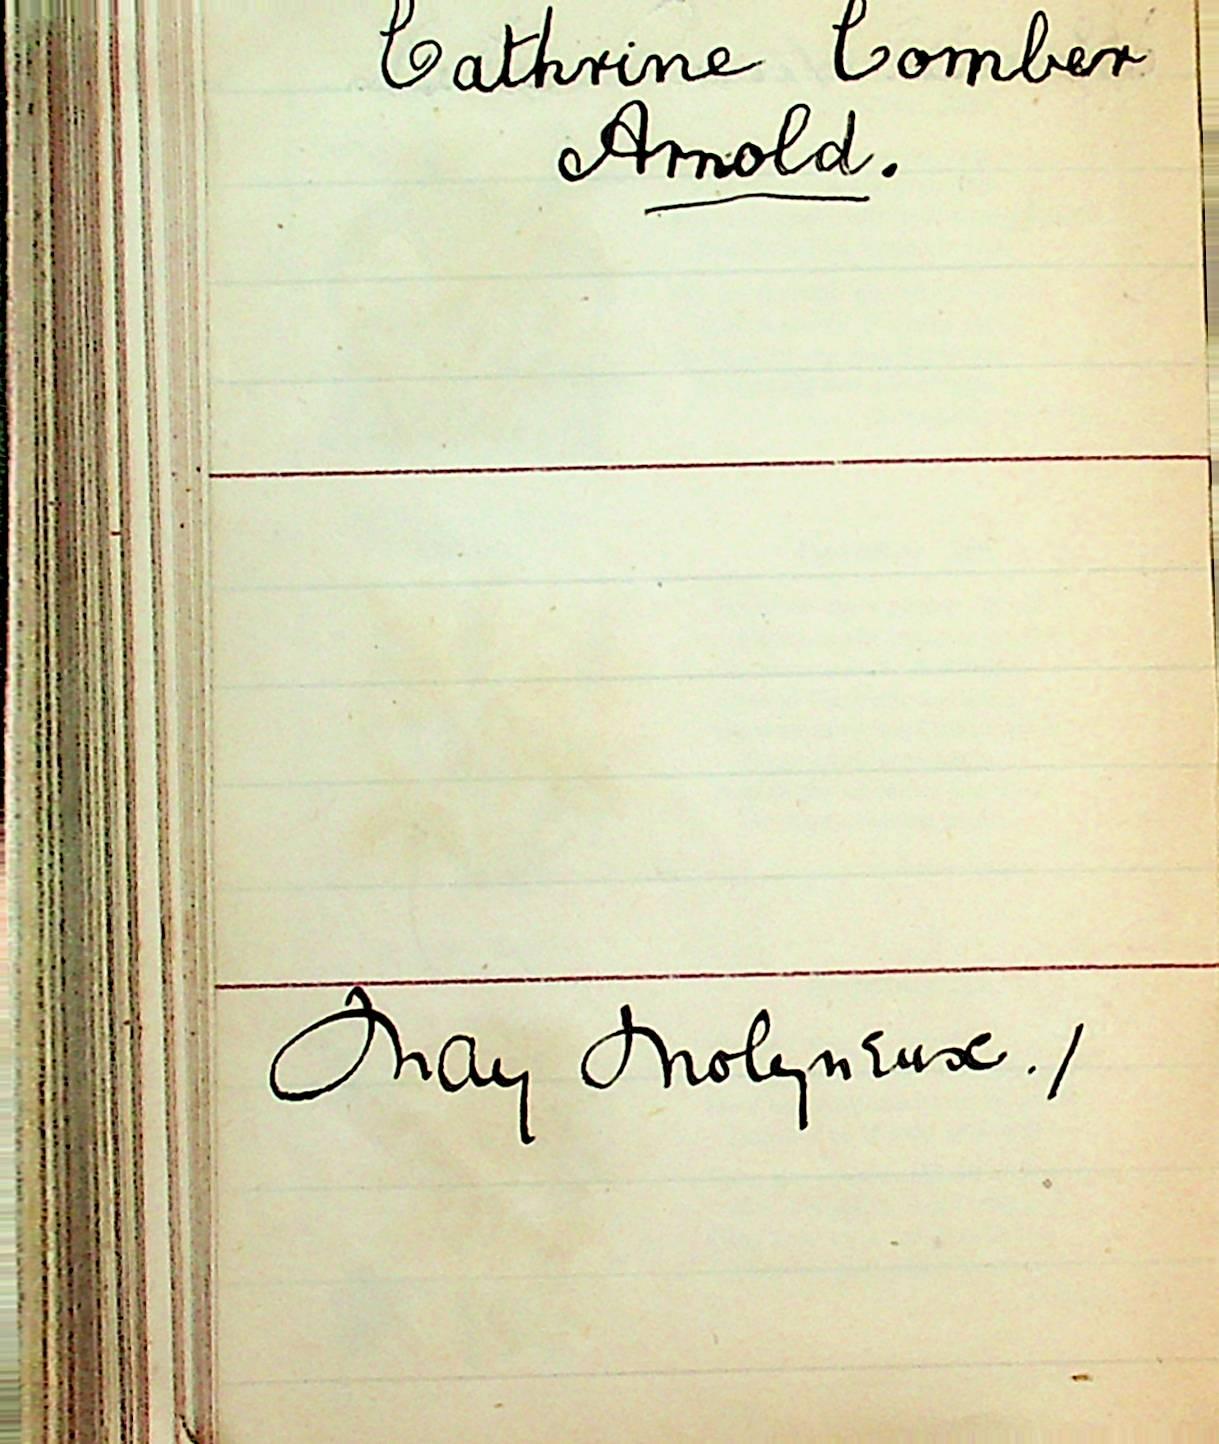 Cathrine Comber
Arnold.
May Molyneux./